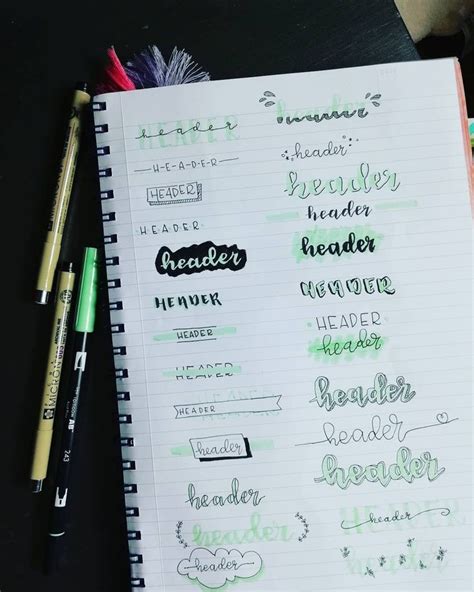 header
HEADER
H-E-A-D-E-R
HEADER
HEADER
header
HEADER
HEADER
HEADER
HEADER
header
header
header
header
header
header
header
header
header
HEADER
HEADER
header
header
header
header
HEADER
header
header
MICRON
243